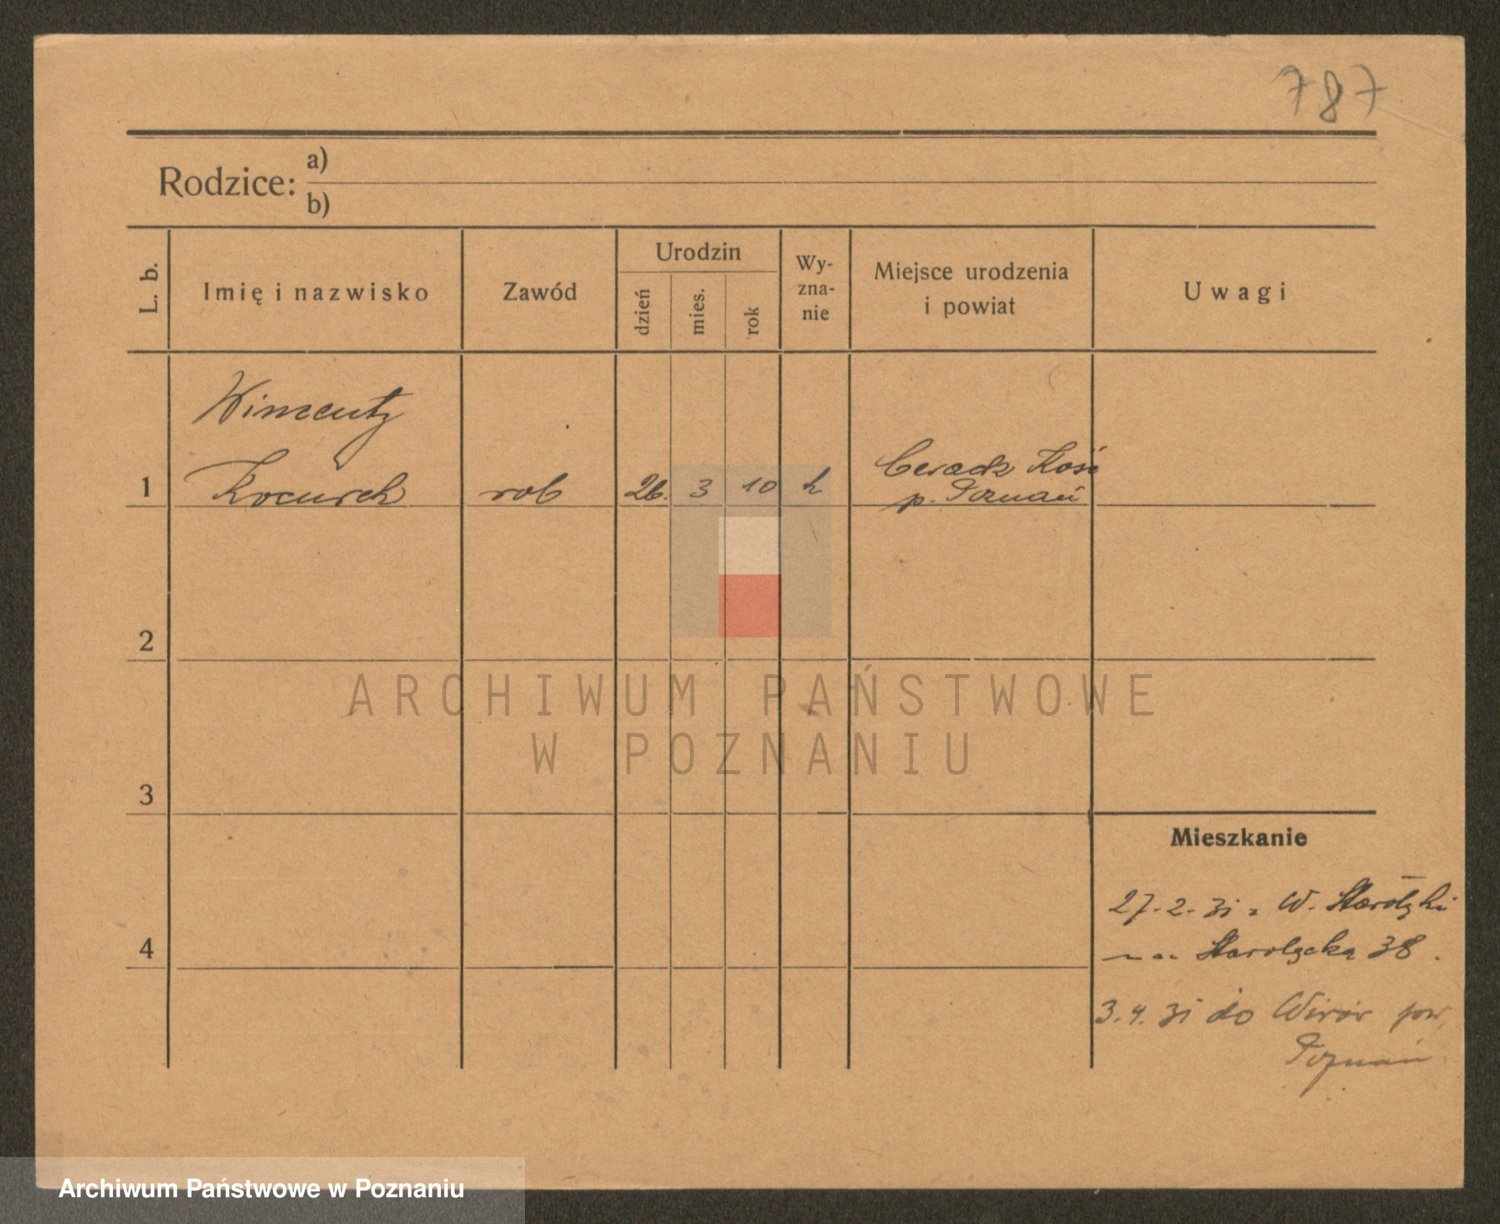 787
Rodzice: a)
b)
L. b.
Imię i nazwisko
Zawód
Urodzin
dzień
mies.
rok
Wy-
zna-
nie
Miejsce urodzenia
i powiat
Uwagi
Wincenty
1 Kocurek rob 26. 3 10 k Ceradz Kośc
p. Poznań
2
ARCHIWUM PAŃSTWOWE
W POZNANIU
3
Mieszkanie
27.2.31 z W. Starołęki
4
na Starołęcka 38.
3.4.31 do Wirór pow.
Poznań
Archiwum Państwowe w Poznaniu